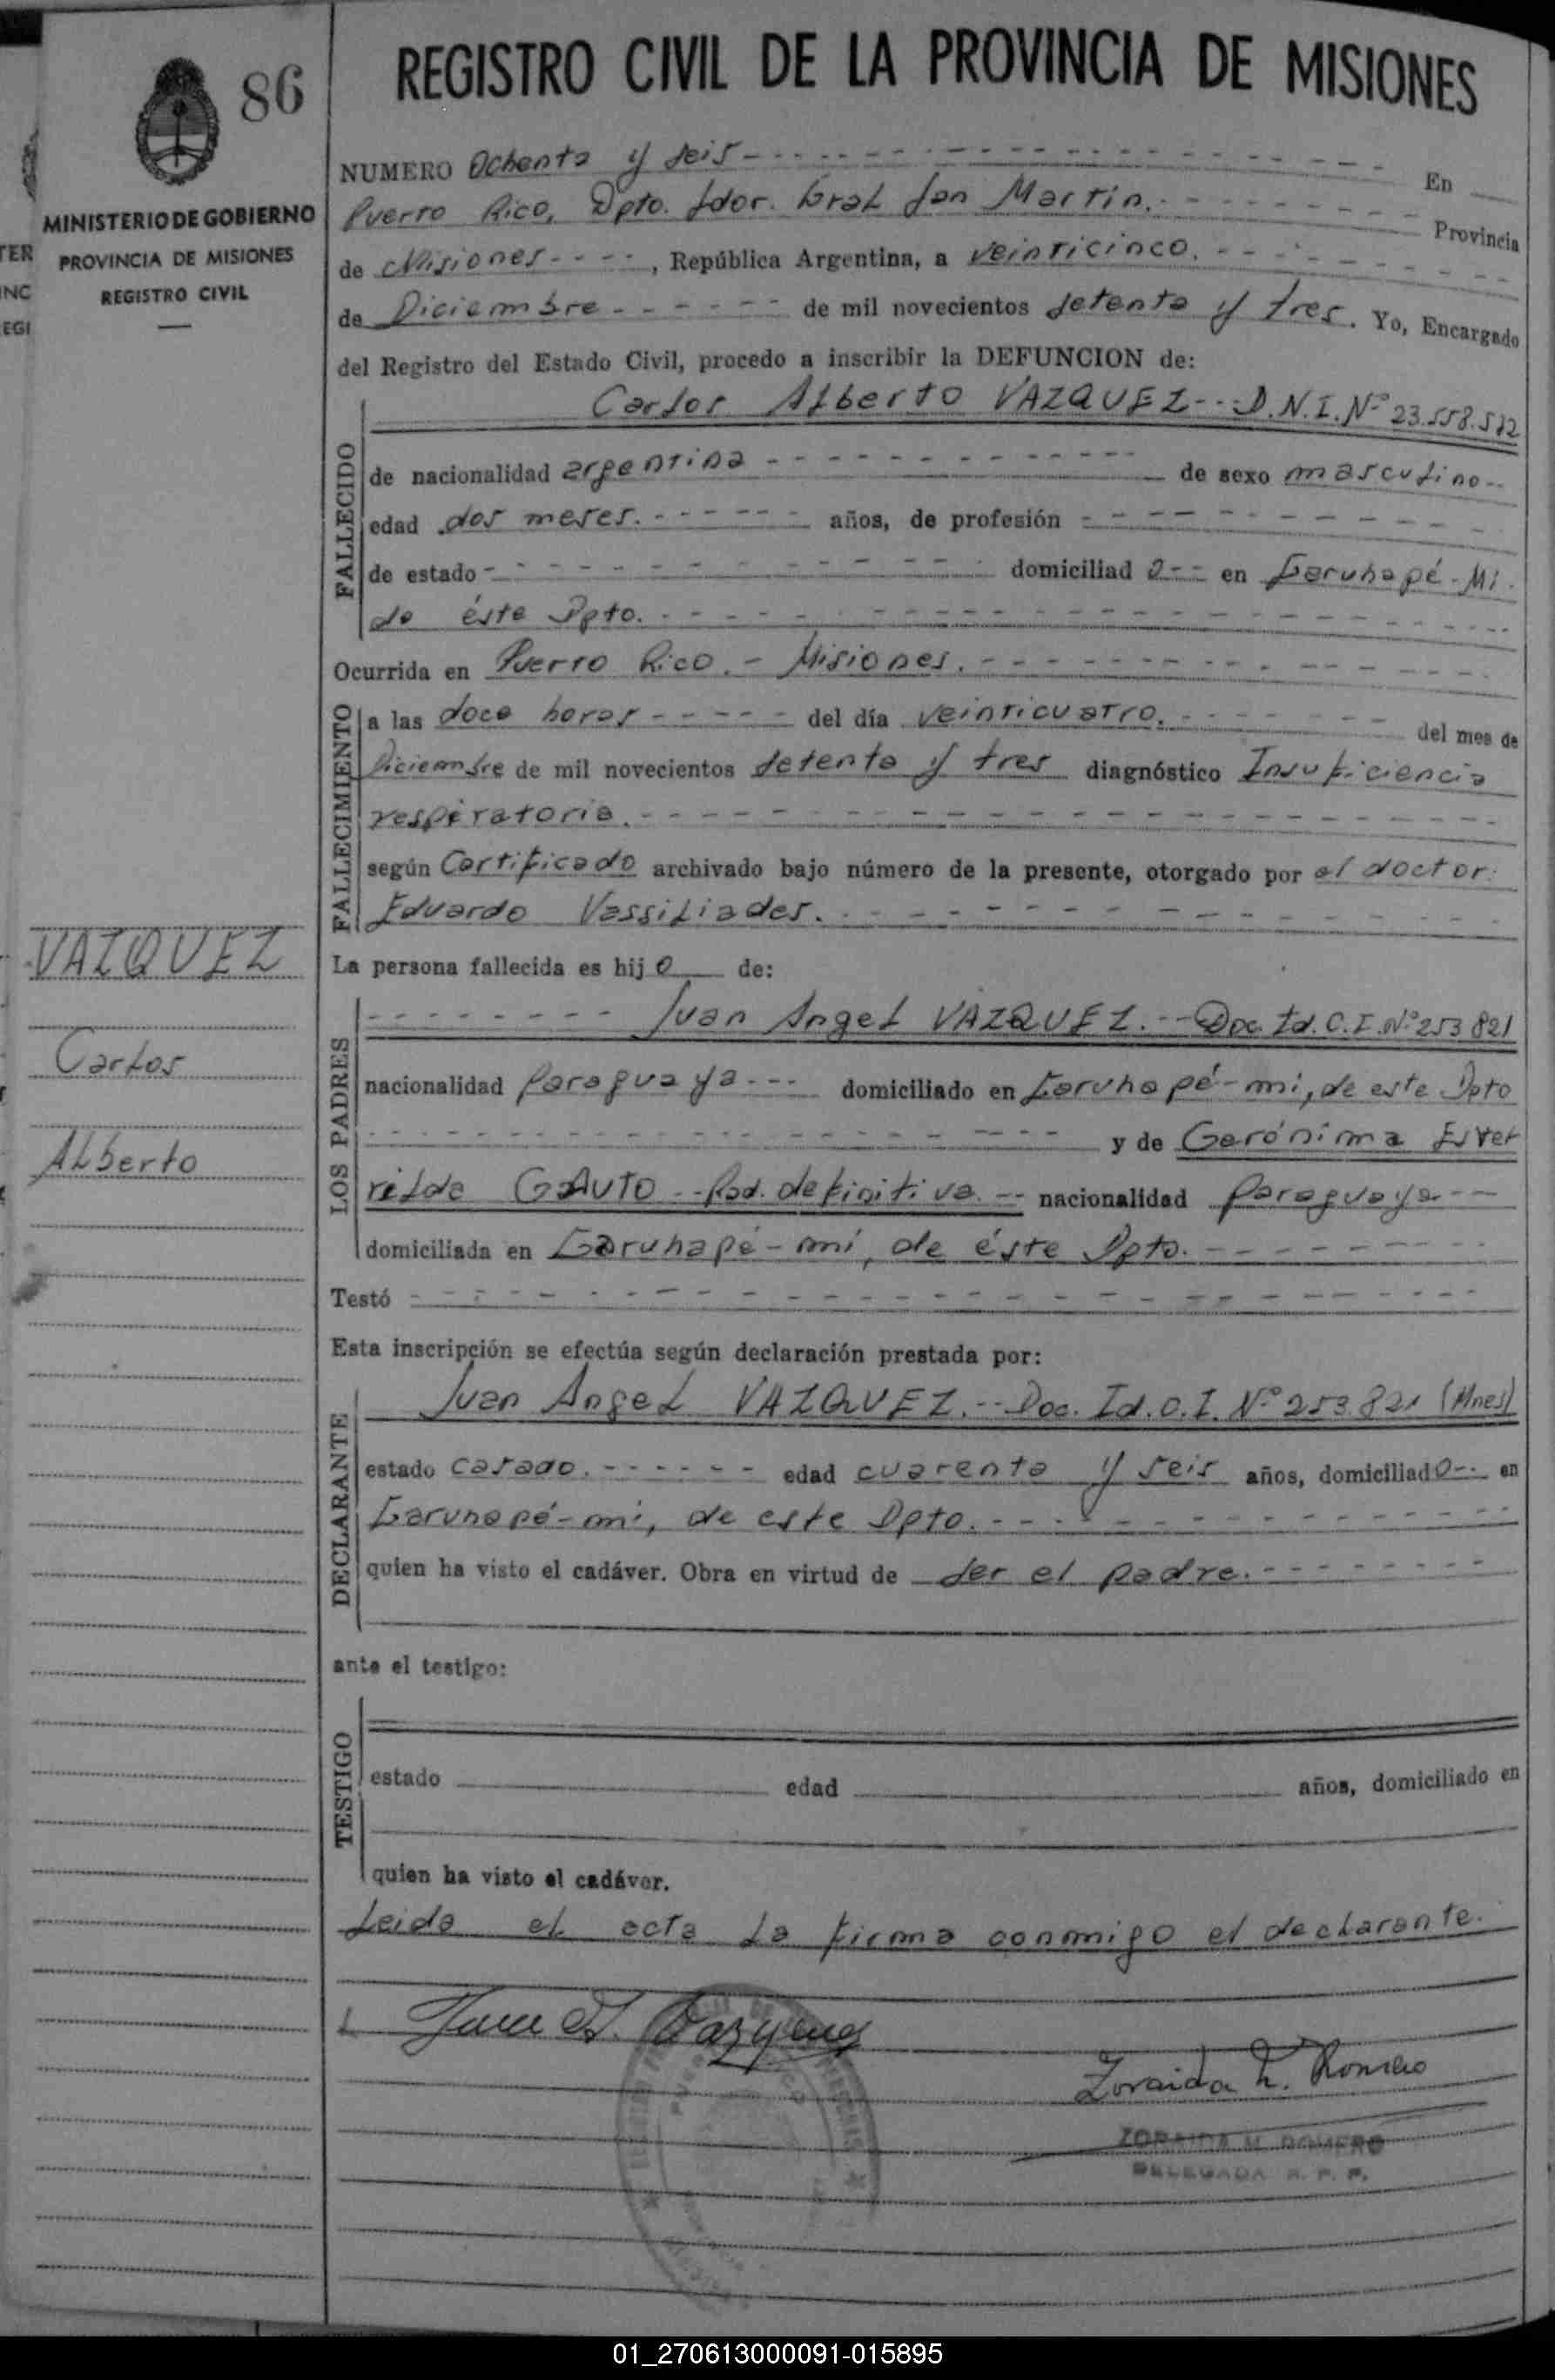 86
REGISTRO CIVIL DE LA PROVINCIA DE MISIONES
MINISTERIO DE GOBIERNO
PROVINCIA DE MISIONES
REGISTRO CIVIL
TER
INC
EGI
NUMERO Ochenta y seis En
Puerto Rico, Dpto. Ldor. Gral San Martín. Provincia
de Misiones, República Argentina, a veinticinco.
de Diciembre de mil novecientos setenta y tres. Yo, Encargado
del Registro del Estado Civil, procedo a inscribir la DEFUNCION de:
Carlos Alberto VAZQUEZ D.N.I. Nº 23.558.5
FALLECIDO
de nacionalidad argentina de sexo masculino
edad dos meses. años, de profesión
de estado domiciliad o en Garuhapé-Mi
de éste Dpto.
Ocurrida en Puerto Rico. - Misiones.
FALLECIMIENTO
a las doce horas del día veinticuatro. del mes de
Diciembre de mil novecientos setenta y tres diagnóstico Insuficiencia
respiratoria.
según Certificado archivado bajo número de la presente, otorgado por el doctor
Eduardo Vassiliades.
La persona fallecida es hij o de:
LOS PADRES
Juan Angel VAZQUEZ. Doc. Id. C.I. Nº 253821
nacionalidad Paraguaya domiciliado en Garuhapé-mi, de este Dpto
y de Gerónima Ester
rilda GAUTO Rad. definitiva nacionalidad Paraguaya
domiciliada en Garuhapé-mí, de éste Dpto.
Testó
Esta inscripción se efectúa según declaración prestada por:
DECLARANTE
Juan Angel VAZQUEZ. Doc. Id. C.I. Nº 253.821 (Mnes)
estado casado. edad cuarenta y seis años, domiciliado en
Garuhapé-mí, de este Dpto.
quien ha visto el cadáver. Obra en virtud de ser el padre.
ante el testigo:
TESTIGO
estado edad años, domiciliado en
quien ha visto el cadáver.
Leida el acta la firma conmigo el declarante.
Juan A. Vazquez
Zoraida M. Romero
ZORAIDA M. ROMERO
DELEGADA R. P. P.
VAZQUEZ
Carlos
Alberto
01_270613000091-015895